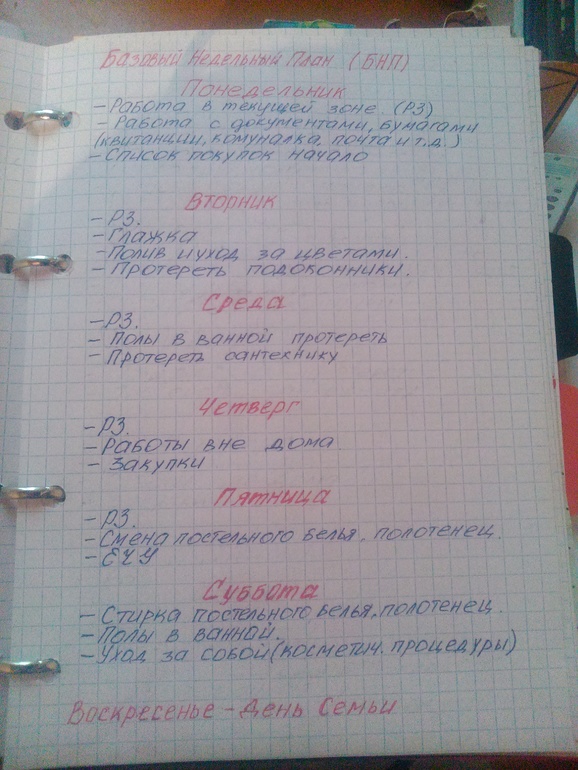 Базовый Недельный План (БНП)
Понедельник
- Работа в текущей зоне (РЗ)
- Работа с документами, бумагами
(квитанции, комуналка, почта и т.д.)
- Список покупок начало
Вторник
- РЗ.
- Глажка
- Полив и уход за цветами.
- Протереть подоконники.
Среда
- РЗ.
- Полы в ванной протереть
- Протереть сантехнику
Четверг
- РЗ.
- Работы вне дома
- Закупки
Пятница
- РЗ.
- Смена постельного белья, полотенец.
- ЕЧУ
Суббота
- Стирка постельного белья, полотенец.
- Полы в ванной.
- Уход за собой (косметич. процедуры)
Воскресенье - День Семьи